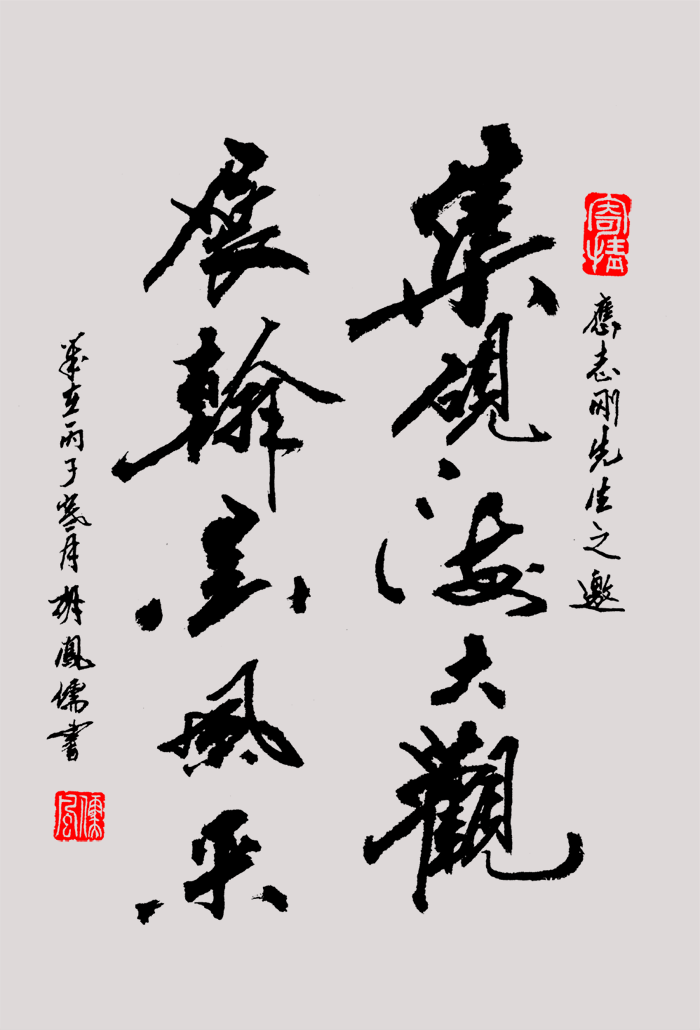 寄情
應志刚先生之邀
集硯海大觀
展翰墨風采
歲在丙子月胡鳳儒書